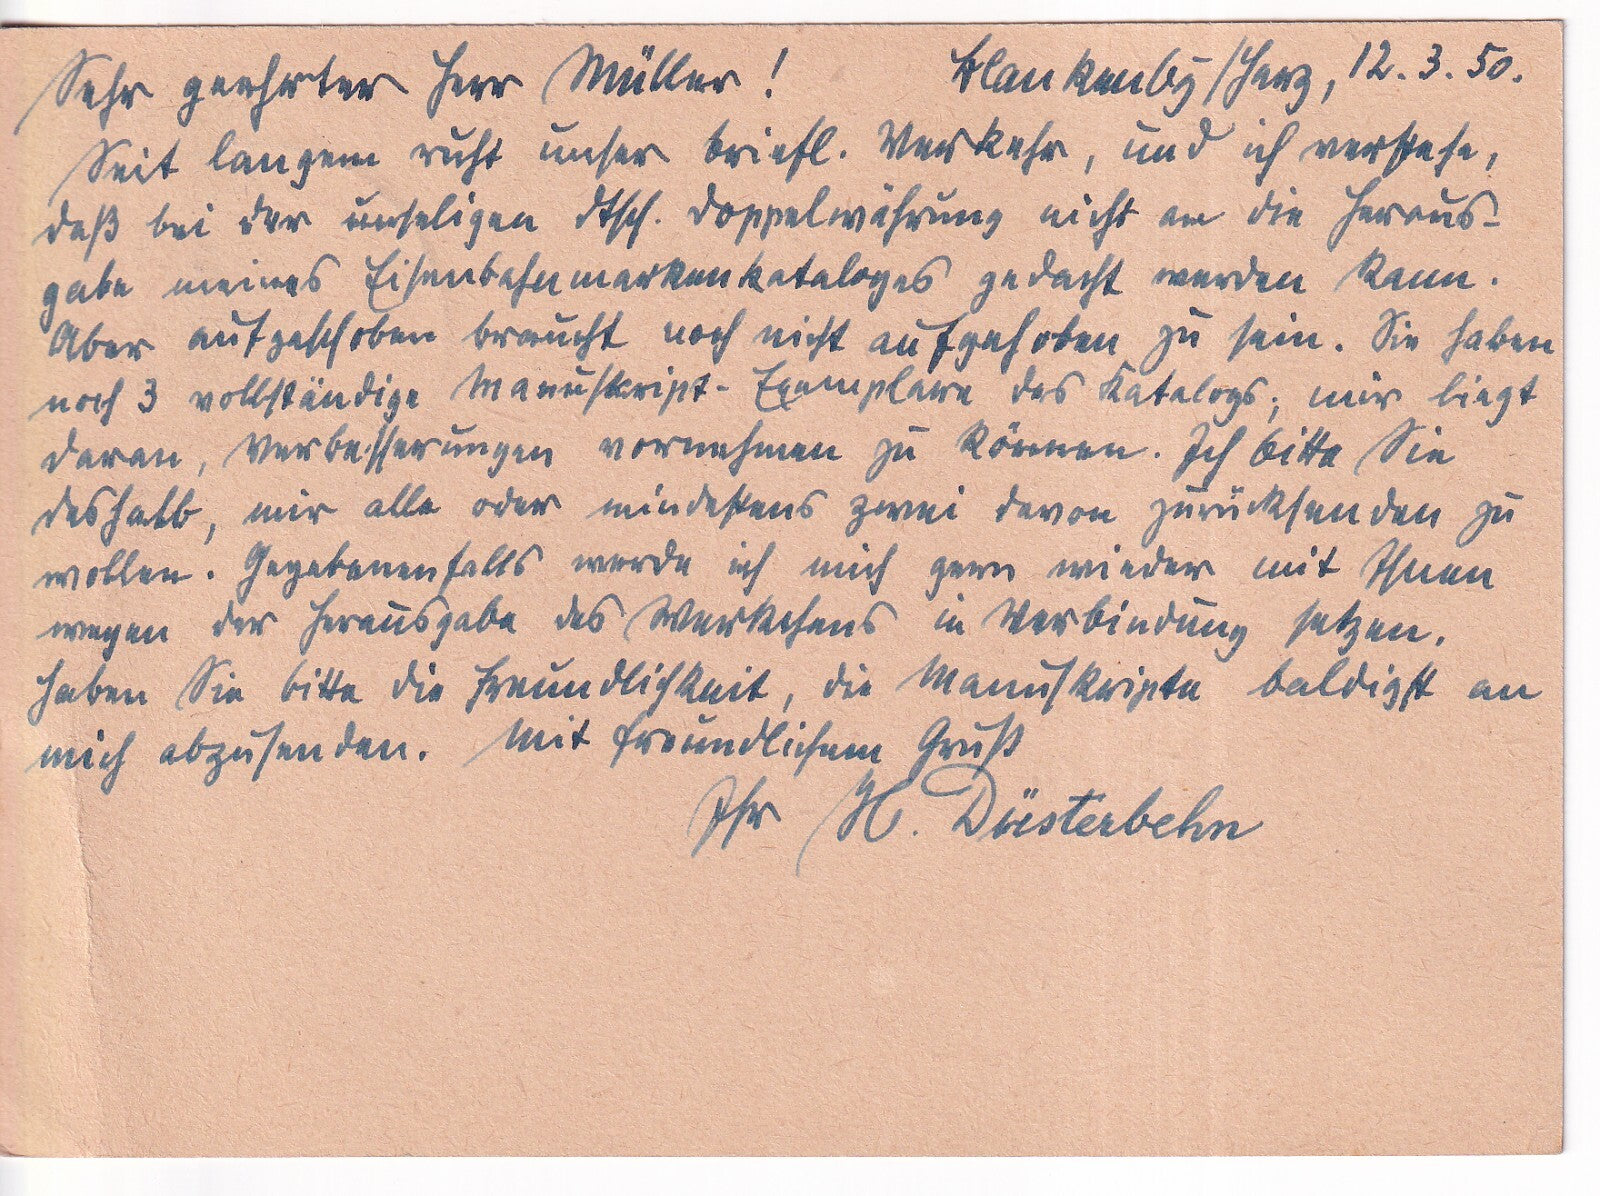 Sehr geehrter Herr Müller! Blankenbg/Harz, 12.3.50.
Seit langem ruht unser briefl. Verkehr, und ich verstehe,
daß bei der unseligen dtsch. Doppelwährung nicht an die Heraus-
gabe meines Eisenbahnmarkenkataloges gedacht werden kann.
Aber aufgeschoben braucht noch nicht aufgehoben zu sein. Sie haben
noch 3 vollständige Manuskript-Exemplare des Katalogs; mir liegt
daran, Verbesserungen vornehmen zu können. Ich bitte Sie
deshalb, mir alle oder mindestens zwei davon zurücksenden zu
wollen. Gegebenenfalls werde ich mich gern wieder mit Ihnen
wegen der Herausgabe des Werkchens in Verbindung setzen.
Haben Sie bitte die Freundlichkeit, die Manuskripte baldigst an
mich abzusenden. Mit freundlichem Gruß
Ihr H. Düsterbehn